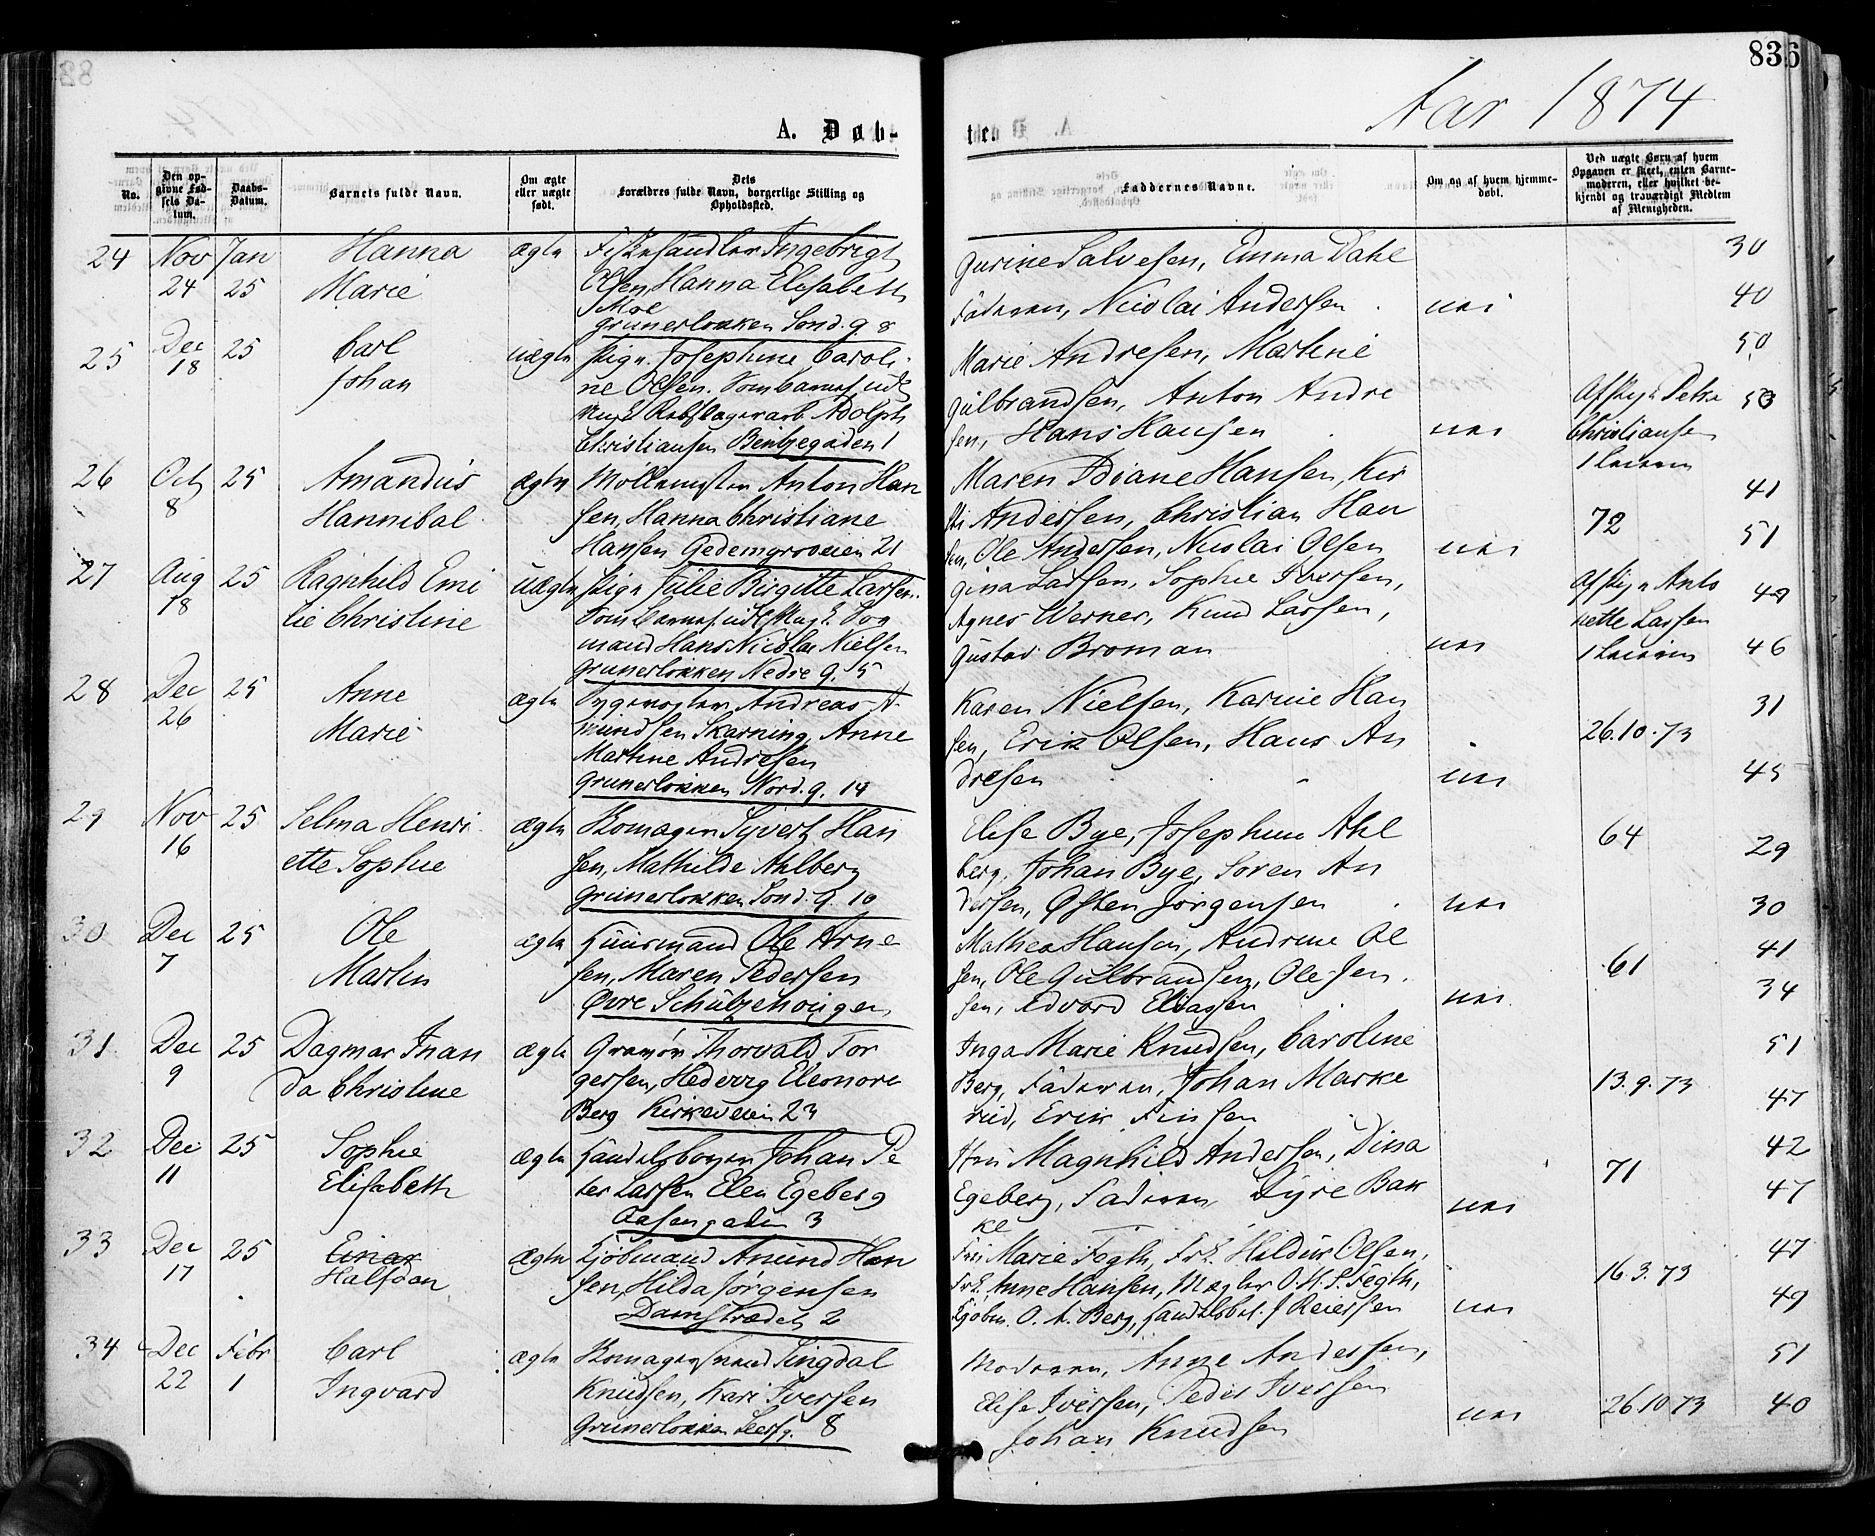 836
Aar 1874
A. Døb-
te.
No.
Den op-
givne Fød-
sels Da-
tum.
Daabs-
Datum.
Barnets fulde Navn.
Om ægte
eller uægte
født.
Dets
Forældres fulde Navn, borgerlige Stilling og
Opholdssted.
Faddernes Navne.
Om og af hvem hjemme-
døbt.
Ved uægte Børn af hvem
Opgaven er skeet, enten Barne-
moderen, eller hvilket be-
kjendt og troværdigt Medlem
af Menigheden.
24 Nov 24 Jan 25
Hanna
Marie
ægte
Ingebrigt
Olsen, Hanna Elisabeth
Moe
Grünerløkken Sond. g. 8
Gurine Salvesen, Emma Dahl
Faderen, Nicolai Andersen
nei
30
40
25 Dec 18 25
Carl
Johan
uægte
Pige Josephine Caroli
ne Olsen. Som Barnef. udl
Ungk. Adolph
Christiansen Bentzegaden 1
Marie Andresen, Martine
Gulbrandsen, Anton Andre
sen, Hans Hansen
nei
Af Pige Petra
Christiansen
50
50
26 Oct 8 25
Amandus
Hannibal
ægte
Møllemester Anton Han
sen, Hanna Christiane
Hansen Gedemyrsveien 21
Maren Diane Hansen, Kir
sti Andersen, Christian Han
sen, Ole Andersen, Nicolai Olsen
nei
72
41
51
27 Aug 18 25
Ragnhild Emi
lie Christine
uægte
Pige Julie Birgitte Larsen.
Som Barnef. udl. Ungk. Sog
mand Hans Nicolai Nielsen
Grünerløkken Nedre g. 5
Gina Larsen, Sophie Iversen,
Agnes Werner, Knud Larsen,
Gustav Broman
nei
Af Pige Anto
nette Larsen
49
46
28 Dec 26 25
Anne
Marie
ægte
Andreas A
mundsen Skarning, Anne
Martine Andresen
Grünerløkken Nord. g. 14
Karen Nielsen, Karnie Han
sen, Erik Olsen, Hans An
dresen
nei
26.10.73
31
45
29 Nov 16 25
Selma Henri
ette Sophie
ægte
Skomager Syvert Han
sen, Mathilde Ahlberg
Grünerløkken Sond. g. 10
Elise Bye, Josephine Ahl
berg, Johan Bye, Søren An
dersen, Østen Jørgensen
nei
64
29
30
30 Dec 7 25
Ole
Martin
ægte
Huusmand Ole Arne
sen, Maren Pedersen
Øvre Schultzehougen
Mathea Hansen, Andrine Ol
sen, Ole Gulbrandsen, Ole Jen
sen, Edvard Eliassen
nei
61
41
34
31 Dec 9 25
Dagmar Inan
da Christine
ægte
Gravør Thorvald Tor
gersen, Hedevig Eleonore
Berg Kirkeveien 23
Inga Marie Knudsen, Caroline
Berg, Faderen, Johan Marke
rud, Erik Finsen
13.9.73
51
47
32 Dec 11 25
Sophie
Elisabeth
ægte
Handelsborger Johan Pe
ter Larsen Elen Egeberg
Aasengaden 3
Fru Magnhild Andersen, Dina
Egeberg, Faderen Dyre Bak
ke
nei
71
42
47
33 Dec 17 25
Einar
Halfdan
ægte
Kjøbmand Amund Han
sen, Hilda Jørgensen
Damstrædet 2
Fru Marie Fegth, Frk. Hildur Olsen,
Frk. Anne Hansen, Mægler O. H. S. Fegth,
Kjøbm. O. A. Berg, Handelsbet. J Reiersen
nei
16.3.73
47
49
34 Dec 22 Febr 1
Carl
Ingvard
ægte
Skomagersvend Singdal
Knudsen, Kari Iversen
Grünerløkken Leerf g. 8
Moderen, Anne Andersen,
Elise Iversen, Peder Iversen
Johan Knudsen
nei
26.10.73
51
40